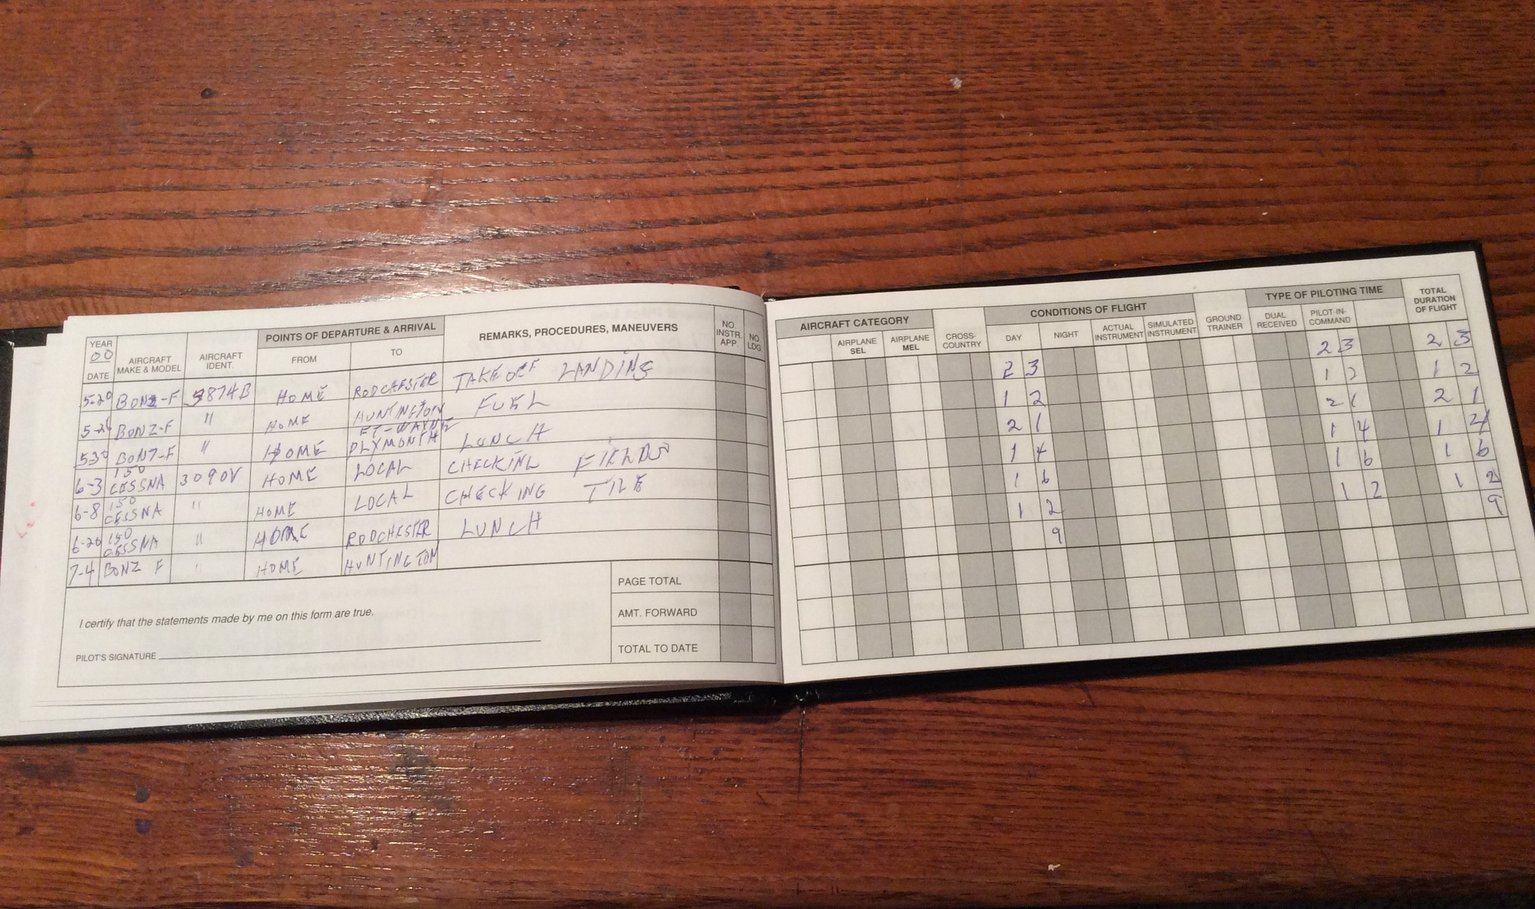 YEAR 00 DATE AIRCRAFT MAKE & MODEL AIRCRAFT IDENT. POINTS OF DEPARTURE & ARRIVAL FROM TO REMARKS, PROCEDURES, MANEUVERS NO. INSTR APP NO. LDG
5-20 BONZ-F 3874B HOME RODCHESTER TAKE OFF LANDING
BONZ-F " HOME HUNTINGTON FUEL
530 BONZ-F " HOME FT-WAYNE PLYMONTH LUNCH
6-3 150 CESSNA 3090V HOME LOCAL CHECKING FIELDS
6-8 150 CESSNA " HOME LOCAL CHECKING TILE
6-26 150 CESSNA " HOME RODCHESTER LUNCH
7-4 BONZ F " HOME HUNTINGTON
I certify that the statements made by me on this form are true.
PILOT'S SIGNATURE
PAGE TOTAL
AMT. FORWARD
TOTAL TO DATE
AIRCRAFT CATEGORY AIRPLANE SEL AIRPLANE MEL CROSS-COUNTRY CONDITIONS OF FLIGHT DAY NIGHT ACTUAL INSTRUMENT SIMULATED INSTRUMENT GROUND TRAINER TYPE OF PILOTING TIME DUAL RECEIVED PILOT-IN-COMMAND TOTAL DURATION OF FLIGHT
2 3 2 3 2 3
1 2 1 2 1 2
2 1 2 1 2 1
1 4 1 4 1 4
1 6 1 6 1 6
1 2 1 2 1 2
9 9